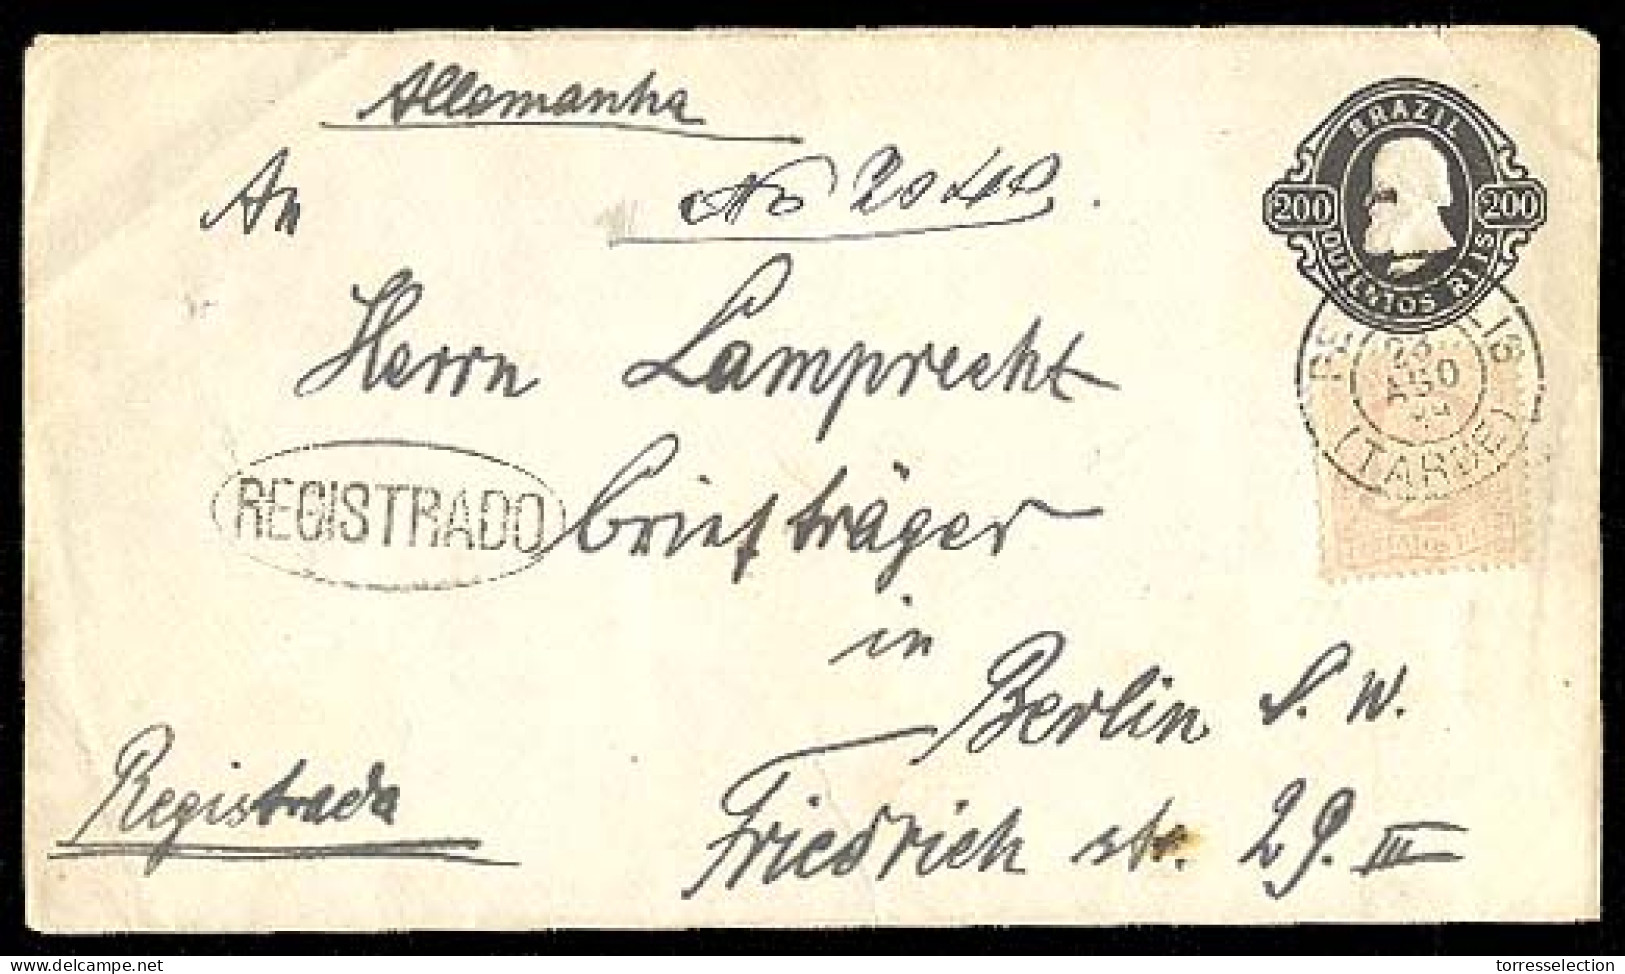 Allemanha
BRAZIL
An
No 2040.
200 200
DUZENTOS REIS
Herrn Lamprecht
LIS
AGO
(TARDE)
REGISTRADO
Briefträger
in
Berlin S. W.
Registrada
Friedrich str. 29. III
delcampe.net
torresselection